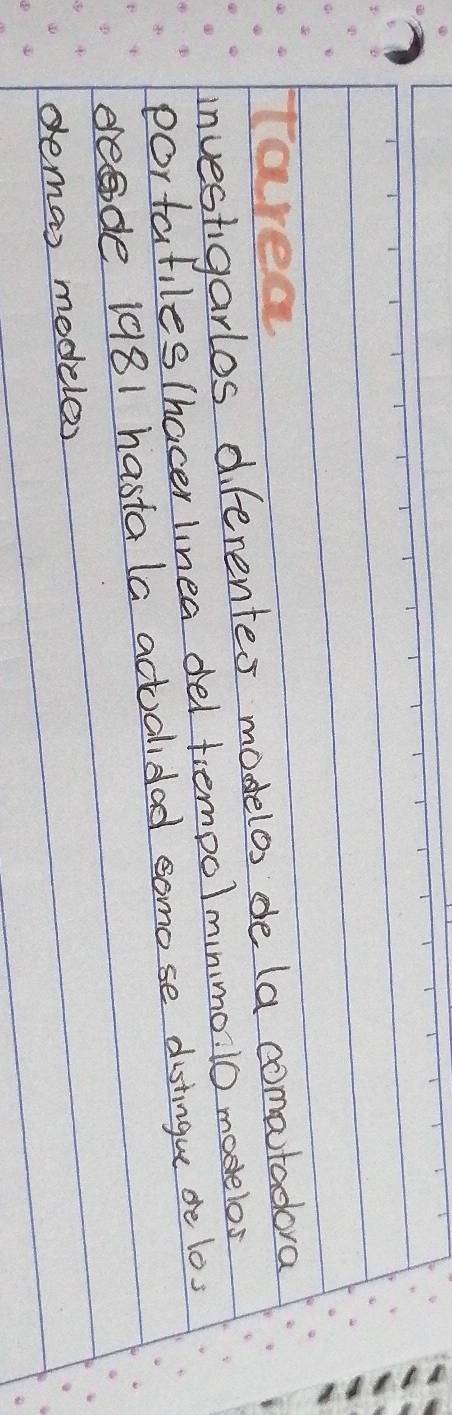 Tarea
investigarlos diferentes modelos de la comautadora
portatiles (hacer linea del tiempo) minimo:10 modelos
desde 1981 hasta la actualidad como se distingue de los
demas modelos